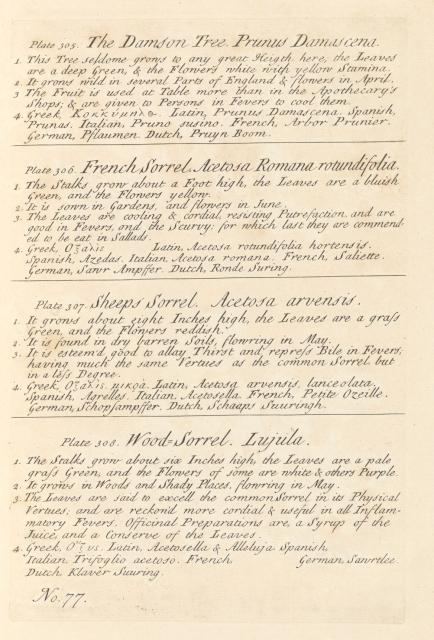 Plate 305. The Damson Tree. Prunus Damascena.
1. This Tree seldome grows to any great Heigth here, the Leaves
are a deep Green, & the Flowers white with yellow Stamina.
2. It grows wild in several Parts of England & flowers in April.
3 The Fruit is used at Table more than in the Apothecary's
Shops; & are given to Persons in Fevers to cool them.
4. Greek, Latin, Prunus Damascena. Spanish,
Prunas. Italian, Pruno susino. French, Arbor Prunier.
German, Pflaumen. Dutch, Pruyn Boom.
Plate 306. French Sorrel. Acetosa Romana rotundifolia.
1. The Stalks grow about a Foot high, the Leaves are a bluish
Green, and the Flowers yellow.
2. It is sown in Gardens, and flowers in June.
3. The Leaves are cooling & cordial, resisting Putrefaction, and are
good in Fevers, and the Scurvy; for which last they are commend-
ed to be eat in Sallads.
4. Greek, Οξαλις Latin, Acetosa rotundifolia hortensis.
Spanish, Azedas. Italian, Acetosa romana. French, Saliette.
German, Sawr Ampffer. Dutch, Ronde Suring.
Plate 307. Sheeps Sorrel. Acetosa arvensis.
1. It grows about eight Inches high, the Leaves are a grass
Green, and the Flowers reddish.
2. It is found in dry barren Soils, flowring in May.
3. It is esteem'd good to allay Thirst and repress Bile in Fevers,
having much the same Vertues as the common Sorrel, but
in a less Degree.
4. Greek, Οξαλις μικρα. Latin, Acetosa arvensis, lanceolata.
Spanish, Agrelles. Italian, Acetosella. French, Petite Ozeille.
German, Schofsampffer. Dutch, Schaaps Suuringh.
Plate 308. Wood=Sorrel. Lujula.
1. The Stalks grow about six Inches high, the Leaves are a pale
grass Green, and the Flowers of some are white & others Purple.
2. It grows in Woods and Shady Places, flowring in May.
3. The Leaves are said to excell the common Sorrel in its Physical
Vertues, and are reckon'd more cordial & useful in all Inflam-
matory Fevers. Officinal Preparations are, a Syrup of the
Juice, and a Conserve of the Leaves.
4. Greek, Οξυς. Latin, Acetosella & Alleluja. Spanish,
Italian, Trifoglio acetoso. French, German, Sawrclee.
Dutch, Klaver Suuring.
No. 77.